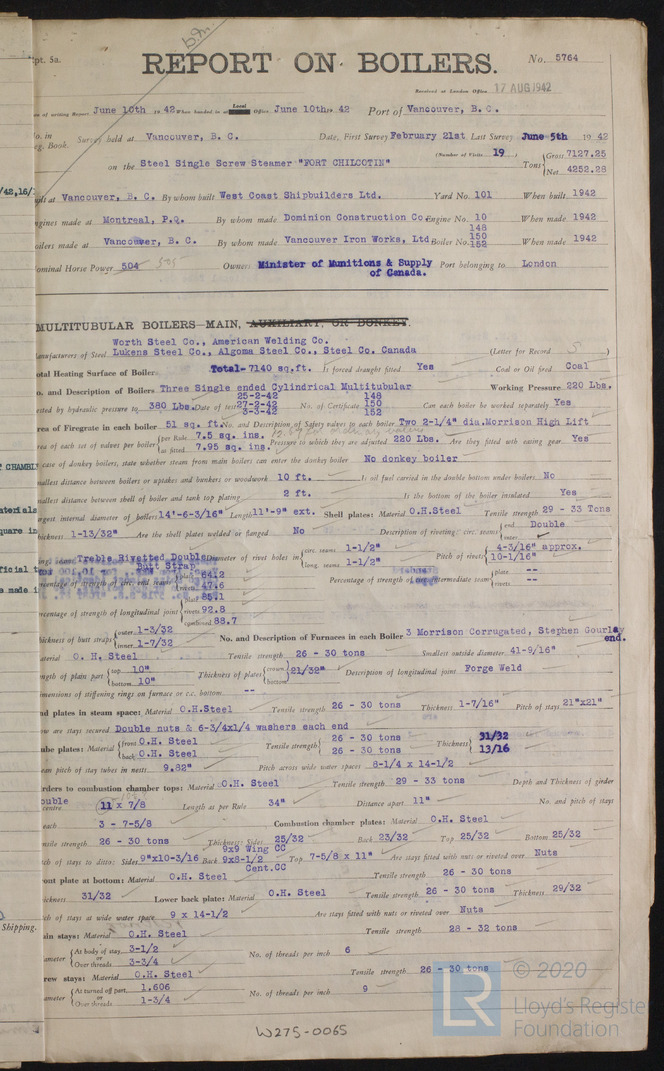 pt. 5a.
REPORT ON BOILERS.
No. 5764
Received at London Office 17 AUG 1942
of writing Report June 10th 19 42 When handed in at Local Office June 10th 19 42 Port of Vancouver, B. C.
o. in
g. Book.
Survey held at Vancouver, B. C. Date, First Survey February 21st Last Survey June 5th 19 42
(Number of Visits 19 )
on the Steel Single Screw Steamer "FORT CHILCOTIN"
Tons { Gross 7127.25
Net 4252.28
/42,16/
ilt at Vancouver, B. C. By whom built West Coast Shipbuilders Ltd. Yard No. 101 When built 1942
ngines made at Montreal, P.Q. By whom made Dominion Construction Co. Engine No. 10 When made 1942
oilers made at Vancouver, B. C. By whom made Vancouver Iron Works, Ltd. Boiler No. 148 150 152 When made 1942
ominal Horse Power 504 505 Owners Minister of Munitions & Supply of Canada. Port belonging to London
MULTITUBULAR BOILERS—MAIN, AUXILIARY, OR DONKEY.
Worth Steel Co., American Welding Co.
anufacturers of Steel Lukens Steel Co., Algoma Steel Co., Steel Co. Canada (Letter for Record S )
otal Heating Surface of Boilers Total-7140 sq.ft. Is forced draught fitted Yes Coal or Oil fired Coal
o. and Description of Boilers Three Single ended Cylindrical Multitubular Working Pressure 220 Lbs.
ested by hydraulic pressure to 380 Lbs. Date of test 25-2-42 27-2-42 3-3-42 No. of Certificate 148 150 152 Can each boiler be worked separately Yes
rea of Firegrate in each boiler 51 sq. ft. No. and Description of Safety valves to each boiler Two 2-1/4" dia. Morrison High Lift
rea of each set of valves per boiler { per Rule 7.5 sq. ins.
as fitted 7.95 sq. ins. Pressure to which they are adjusted 220 Lbs. Are they fitted with easing gear Yes
case of donkey boilers, state whether steam from main boilers can enter the donkey boiler No donkey boiler
T CHAMBL
mallest distance between boilers or uptakes and bunkers or woodwork 10 ft. Is oil fuel carried in the double bottom under boilers No
mallest distance between shell of boiler and tank top plating 2 ft. Is the bottom of the boiler insulated Yes
aterials
argest internal diameter of boilers 14'-6-3/16" Length 11'-9" ext. Shell plates: Material O.H.Steel Tensile strength 29 - 33 Tons
quare in
hickness 1-13/32" Are the shell plates welded or flanged No Description of riveting: circ. seams { end Double
inter.
ong. seams Treble Rivetted Double Butt Strap Diameter of rivet holes in { circ. seams 1-1/2"
long. seams 1-1/2" Pitch of rivets { 4-3/16" approx.
10-1/16"
ficial t
ercentage of strength of circ. end seams { plate 64.2
rivets 47.6 Percentage of strength of circ. intermediate seam { plate --
rivets --
e.made i
ercentage of strength of longitudinal joint { plate 85.1
rivets 92.8
combined 88.7
hickness of butt straps { outer 1-3/32
inner 1-7/32 No. and Description of Furnaces in each Boiler 3 Morrison Corrugated, Stephen Gourlay end.
aterial O. H. Steel Tensile strength 26 - 30 tons Smallest outside diameter 41-9/16"
ength of plain part { top 10"
bottom 10" Thickness of plates { crown
bottom 21/32" Description of longitudinal joint Forge Weld
imensions of stiffening rings on furnace or c.c. bottom --
nd plates in steam space: Material O.H.Steel Tensile strength 26 - 30 tons Thickness 1-7/16" Pitch of stays 21"x21"
ow are stays secured Double nuts & 6-3/4x1/4 washers each end
ube plates: Material { front O.H. Steel
back O.H. Steel Tensile strength { 26 - 30 tons
26 - 30 tons Thickness { 31/32
13/16
ean pitch of stay tubes in nests 9.82" Pitch across wide water spaces 8-1/4 x 14-1/2
irders to combustion chamber tops: Material O.H. Steel Tensile strength 29 - 33 tons Depth and Thickness of girder
ouble
centre 11 x 7/8 Length as per Rule 34" Distance apart 11" No. and pitch of stays
each 3 - 7-5/8 Combustion chamber plates: Material O.H. Steel
ensile strength 26 - 30 tons Thickness: Sides 25/32 Back 23/32 Top 25/32 Bottom 25/32
itch of stays to ditto: Sides 9"x10-3/16 Back 9x9 Wing CC 9x8-1/2 Cent.CC Top 7-5/8 x 11" Are stays fitted with nuts or riveted over Nuts
ront plate at bottom: Material O.H. Steel Tensile strength 26 - 30 tons
ickness 31/32 Lower back plate: Material O.H. Steel Tensile strength 26 - 30 tons Thickness 29/32
tch of stays at wide water space 9 x 14-1/2 Are stays fitted with nuts or riveted over Nuts
Shipping.
ain stays: Material O.H. Steel Tensile strength 28 - 32 tons
ameter { At body of stay 3-1/2
or
Over threads 3-3/4 No. of threads per inch 6
rew stays: Material O.H. Steel Tensile strength 26 - 30 tons
ameter { At turned off part 1.606
or
Over threads 1-3/4 No. of threads per inch 9
W275-0065
LR
© 2020
Lloyd's Registe
Foundation